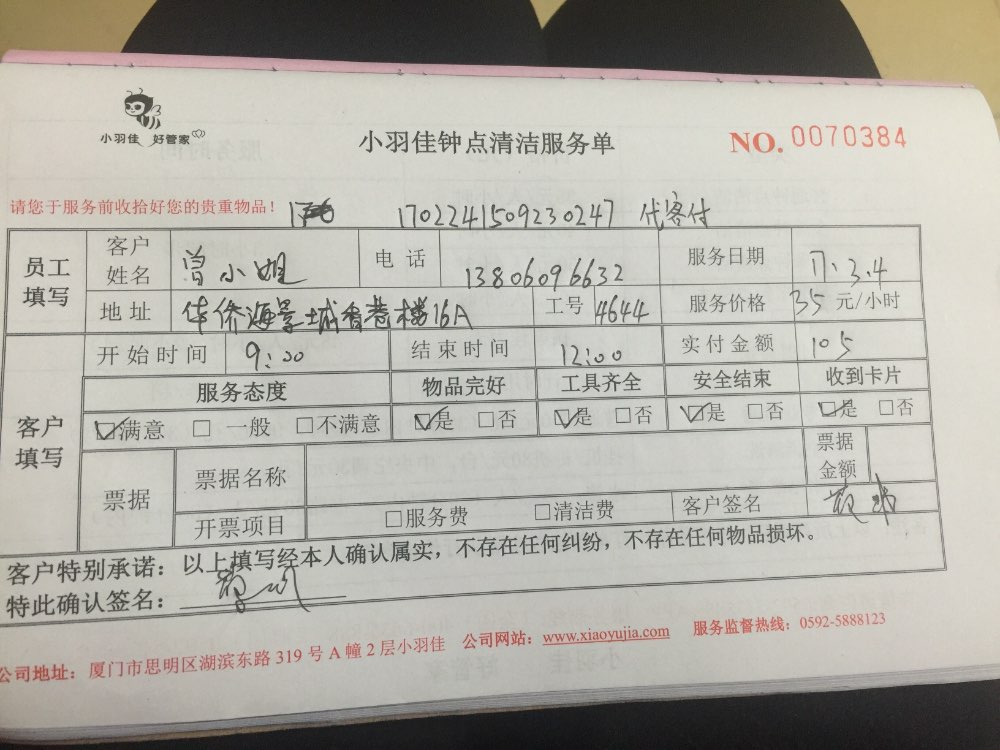 小羽佳 好管家
小羽佳钟点清洁服务单
NO. 0070384
请您于服务前收拾好您的贵重物品！ 170224150923024​7 代客付
员工填写 客户姓名 曾小姐 电话 13806096632 服务日期 17.3.4
地址 华侨海景城香巷楼16A 工号 4644 服务价格 35 元/小时
开始时间 9:00 结束时间 12:00 实付金额 105
客户填写 服务态度 物品完好 工具齐全 安全结束 收到卡片
☑满意 □ 一般 □不满意 ☑是 □否 ☑是 □否 ☑是 □否 ☑是 □否
票据 票据名称 票据金额
开票项目 □服务费 □清洁费 客户签名
客户特别承诺：以上填写经本人确认属实，不存在任何纠纷，不存在任何物品损坏。
特此确认签名：
公司地址：厦门市思明区湖滨东路 319 号 A 幢 2 层小羽佳 公司网站：www.xiaoyujia.com 服务监督热线：0592-5888123